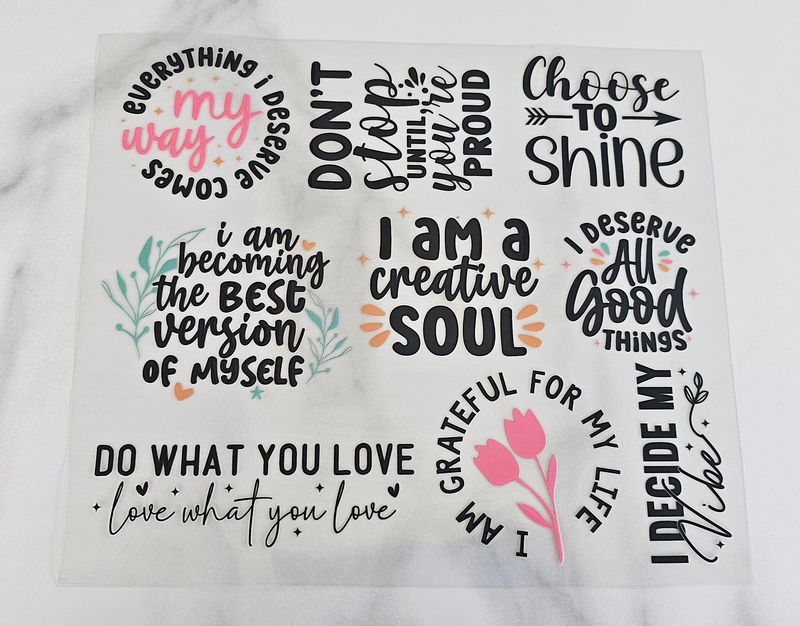 everything i deserve comes
my
way
DON'T
stop
UNTIL
you're
PROUD
Choose
TO
shine
i am
becoming
the BEST
version
OF MYSELF
I AM A
creative
SOUL
I DESERVE
All
Good
THINGS
DO WHAT YOU LOVE
love what you love
I AM GRATEFUL FOR MY LIFE
I DECIDE MY
Vibe